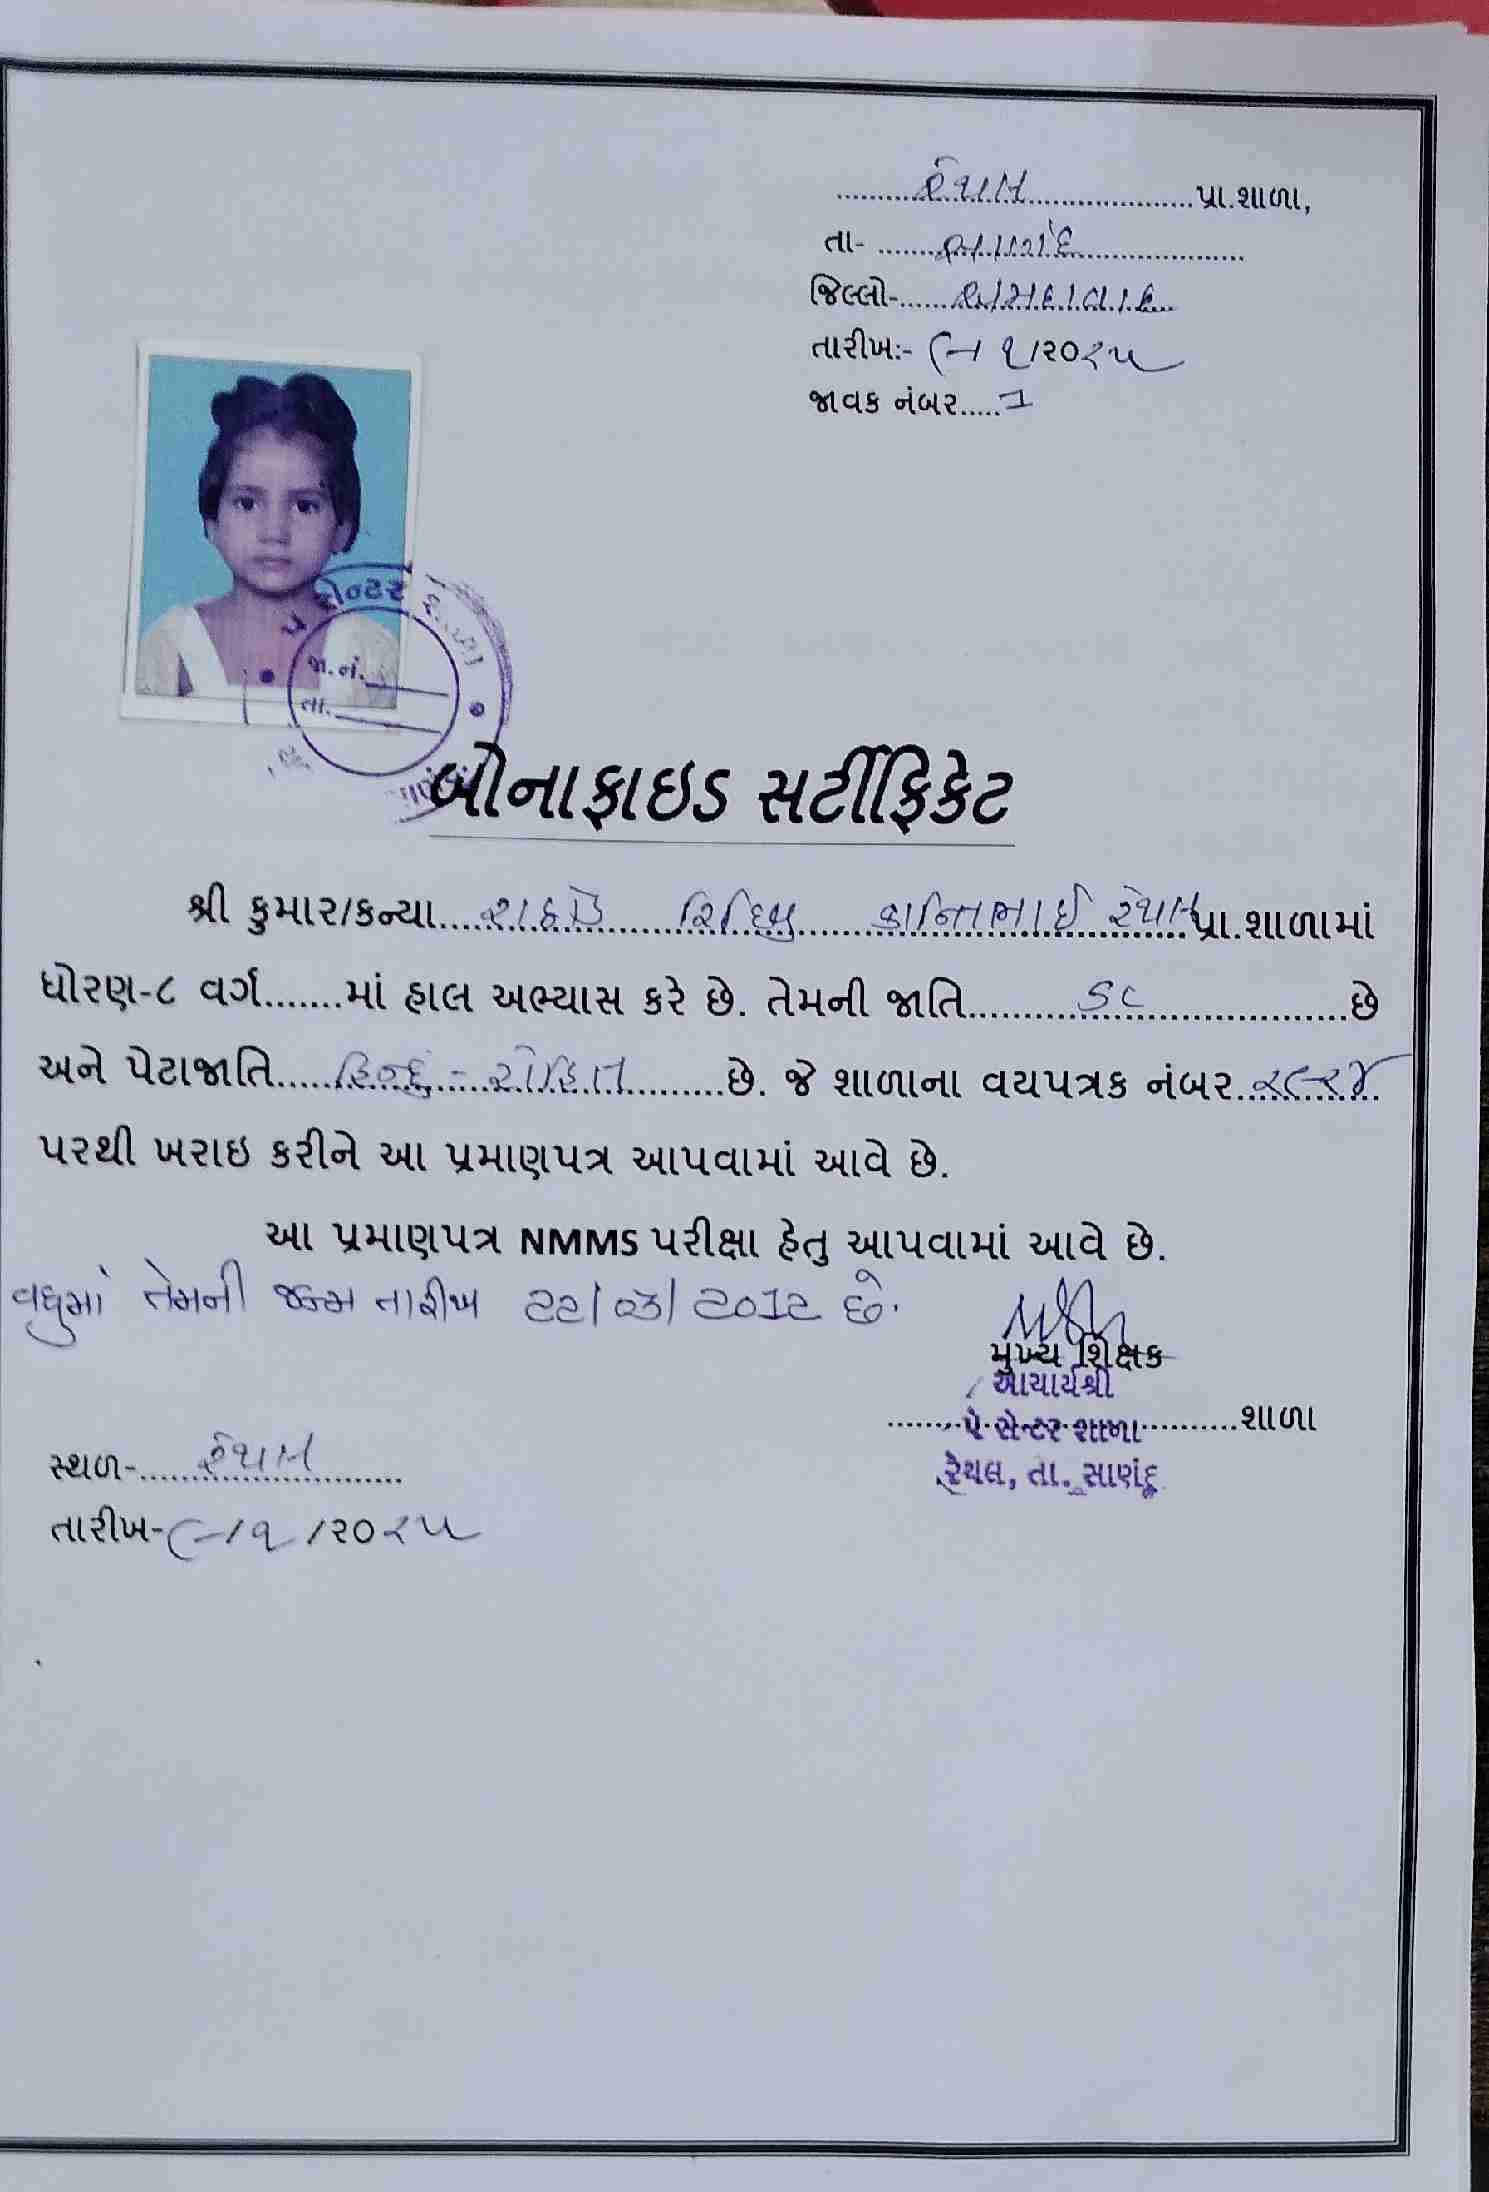 રેથલ પ્રા.શાળા,
તા- સાણંદ
જિલ્લો- અમદાવાદ
તારીખ:- ૯/૧/૨૦૨૫
જાવક નંબર..... 1
સેન્ટર
જા.નં.
તા.
બોનાફાઇડ સર્ટીફિકેટ
શ્રી કુમાર/કન્યા.... રાઠોડ રિદ્ધિ કાન્તિભાઈ રેથલ પ્રા.શાળામાં
ધોરણ-૮ વર્ગ.......માં હાલ અભ્યાસ કરે છે. તેમની જાતિ.... SC ....છે
અને પેટાજાતિ.... હિન્દુ - રોહિત ....છે. જે શાળાના વયપત્રક નંબર.. ૨૯૨૪
પરથી ખરાઇ કરીને આ પ્રમાણપત્ર આપવામાં આવે છે.
આ પ્રમાણપત્ર NMMS પરીક્ષા હેતુ આપવામાં આવે છે.
વધુમાં તેમની જન્મ તારીખ 22/03/2012 છે.
મુખ્ય શિક્ષક
આચાર્યશ્રી
પે સેન્ટર શાળા ....શાળા
રેથલ, તા. સાણંદ
સ્થળ- રેથલ
તારીખ- ૯/૧/૨૦૨૫